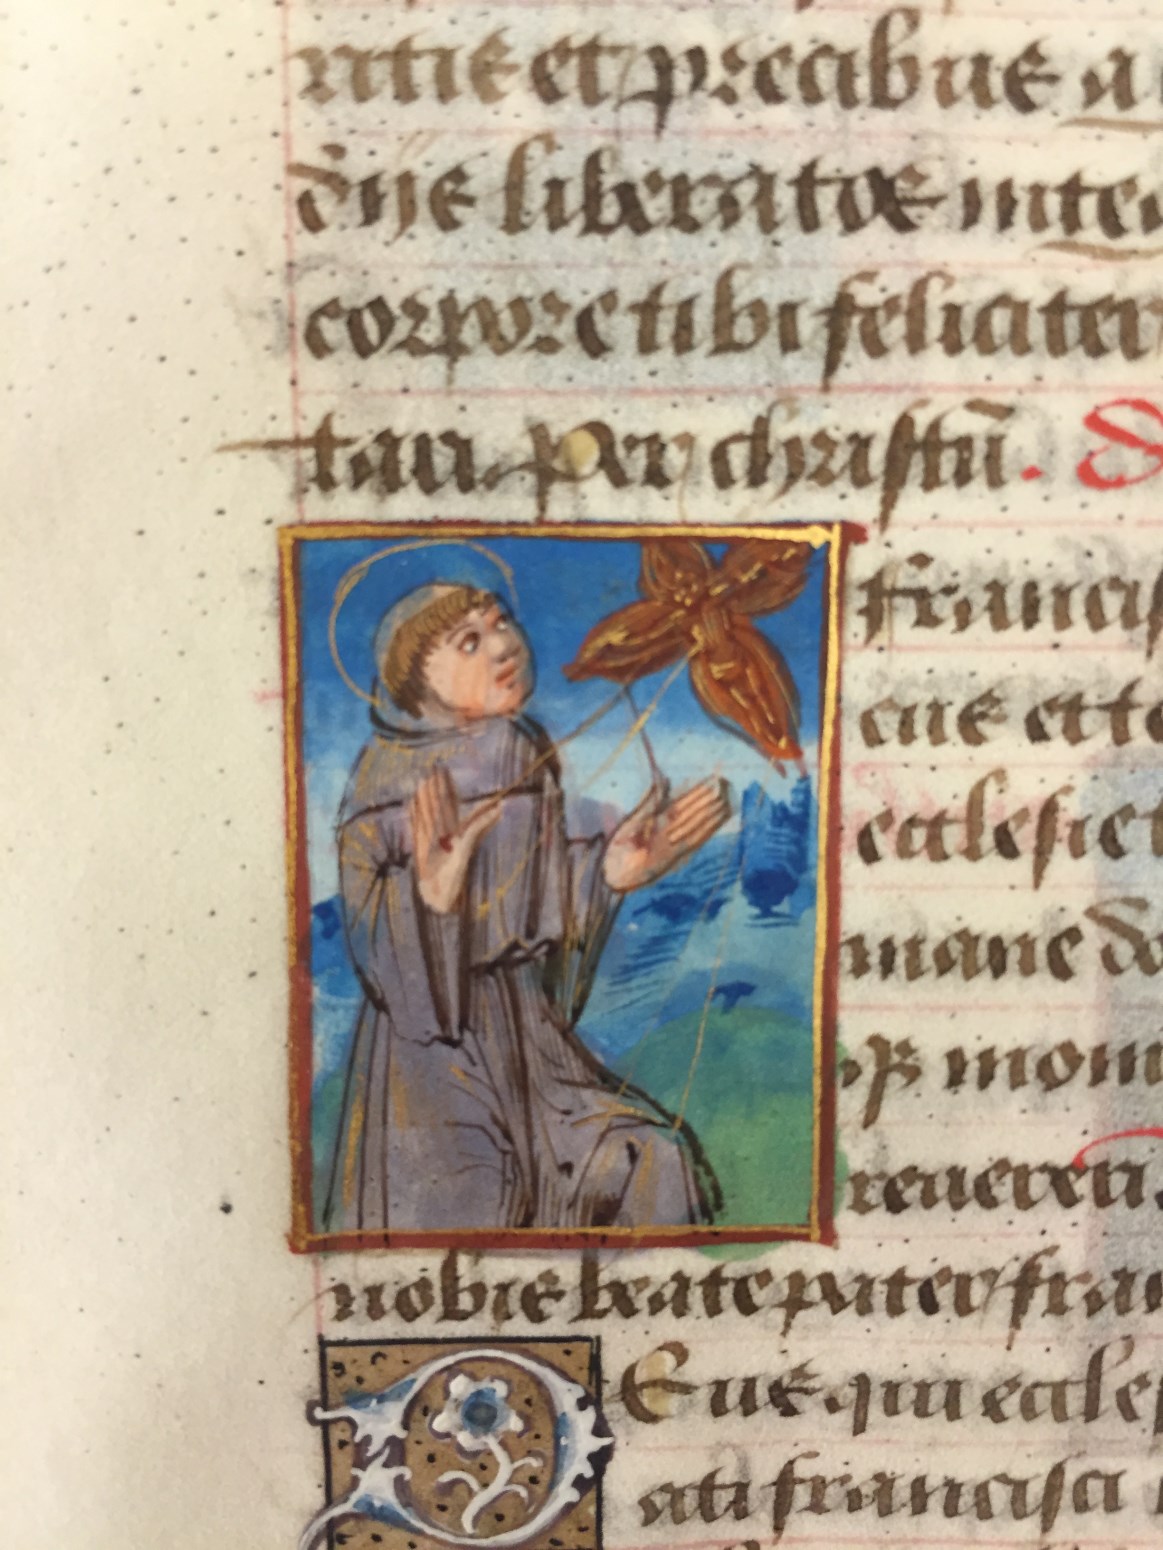 ritis et precibus a
dn̄s liberatos inte
corpore tibi feliciter
tari. per christū.
francis
cus et to
ecclesie t
mane do
reueren
nobis beate pater fran
Deus qui eccles
ati francisci